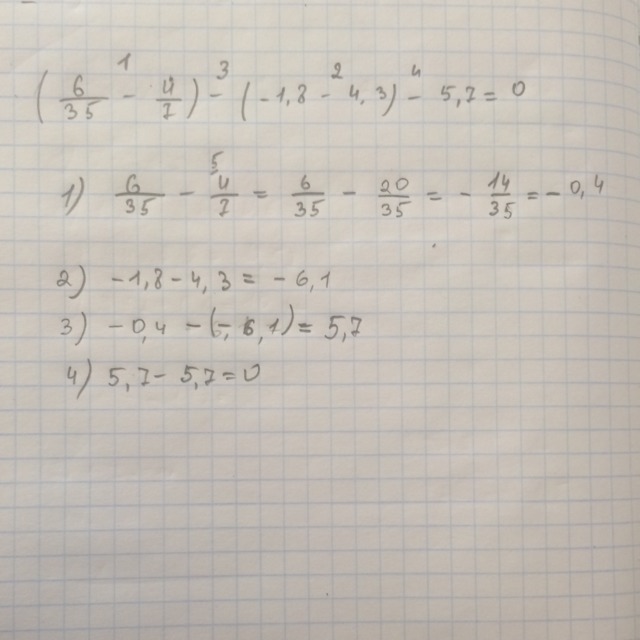 1 3 2 4
(6/35 - 4/7) - (-1,8 - 4,3) - 5,7 = 0
5
1) 6/35 - 4/7 = 6/35 - 20/35 = - 14/35 = - 0,4
2) -1,8 - 4,3 = - 6,1
3) - 0,4 - (- 6,1) = 5,7
4) 5,7 - 5,7 = 0